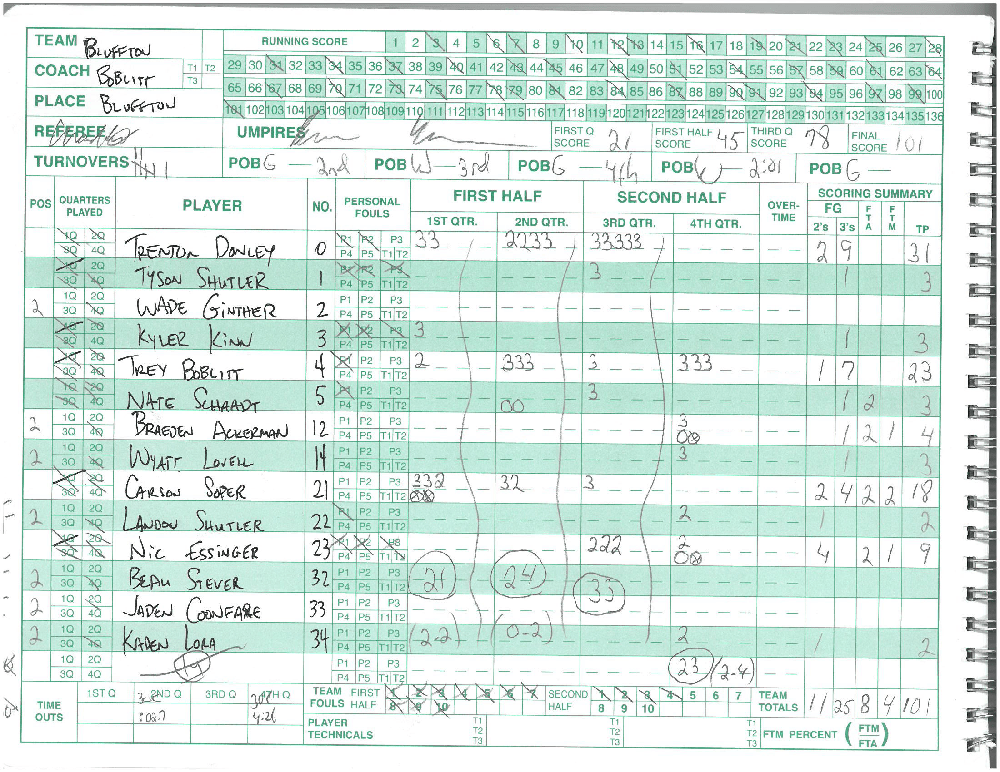 TEAM BLUFFTON RUNNING SCORE 1 2 3 4 5 6 7 8 9 10 11 12 13 14 15 16 17 18 19 20 21 22 23 24 25 26 27 28
COACH BOBLITT T1 T2 T3 29 30 31 32 33 34 35 36 37 38 39 40 41 42 43 44 45 46 47 48 49 50 51 52 53 54 55 56 57 58 59 60 61 62 63 64
65 66 67 68 69 70 71 72 73 74 75 76 77 78 79 80 81 82 83 84 85 86 87 88 89 90 91 92 93 94 95 96 97 98 99 100
PLACE BLUFFTON 101 102 103 104 105 106 107 108 109 110 111 112 113 114 115 116 117 118 119 120 121 122 123 124 125 126 127 128 129 130 131 132 133 134 135 136
REFEREE UMPIRES FIRST Q SCORE 21 FIRST HALF SCORE 45 THIRD Q SCORE 78 FINAL SCORE 101
TURNOVERS POB G — 2nd POB W — 3rd POB G — 4th POB W — 2:01 POB G —
POS QUARTERS PLAYED PLAYER NO. PERSONAL FOULS FIRST HALF SECOND HALF OVER-TIME SCORING SUMMARY
1ST QTR. 2ND QTR. 3RD QTR. 4TH QTR. FG 2's 3's FTA FTM TP
1Q 2Q 3Q 4Q TRENTON DONLEY 0 P1 P2 P3 P4 P5 T1 T2 33 2233 33333 2 9 31
1Q 2Q 3Q 4Q TYSON SHUTLER 1 P1 P2 P3 P4 P5 T1 T2 3 1 3
2 1Q 2Q 3Q 4Q WADE GINTHER 2 P1 P2 P3 P4 P5 T1 T2
1Q 2Q 3Q 4Q KYLER KINN 3 P1 P2 P3 P4 P5 T1 T2 3 1 3
1Q 2Q 3Q 4Q TREY BOBLITT 4 P1 P2 P3 P4 P5 T1 T2 2 333 3 333 1 7 23
1Q 2Q 3Q 4Q NATE SCHAADT 5 P1 P2 P3 P4 P5 T1 T2 00 3 1 2 3
2 1Q 2Q 3Q 4Q BRAEDEN ACKERMAN 12 P1 P2 P3 P4 P5 T1 T2 3 1 2 1 4
2 1Q 2Q 3Q 4Q WYATT LOVELL 14 P1 P2 P3 P4 P5 T1 T2 3 1 3
1Q 2Q 3Q 4Q CARSON SOPER 21 P1 P2 P3 P4 P5 T1 T2 332 32 3 2 4 2 2 18
2 1Q 2Q 3Q 4Q LANDON SHUTLER 22 P1 P2 P3 P4 P5 T1 T2 2 1 2
1Q 2Q 3Q 4Q NIC ESSINGER 23 P1 P2 P3 P4 P5 T1 T2 222 2 4 2 1 9
2 1Q 2Q 3Q 4Q BEAU STEVER 32 P1 P2 P3 P4 P5 T1 T2 21 24 33
2 1Q 2Q 3Q 4Q JADEN COONFARE 33 P1 P2 P3 P4 P5 T1 T2
2 1Q 2Q 3Q 4Q KADEN LORA 34 P1 P2 P3 P4 P5 T1 T2 (2-2) (0-2) 2 1 2
1Q 2Q 3Q 4Q 19 P1 P2 P3 P4 P5 T1 T2 23 (2-4)
TIME OUTS 1ST Q 2ND Q 3RD Q 4TH Q TEAM FOULS FIRST HALF 1 2 3 4 5 6 7 8 9 10 SECOND HALF 1 2 3 4 5 6 7 8 9 10 TEAM TOTALS 11 25 8 4 101
4:26 PLAYER TECHNICALS T1 T2 T3 T1 T2 T3 T1 T2 T3 FTM PERCENT (FTM/FTA)